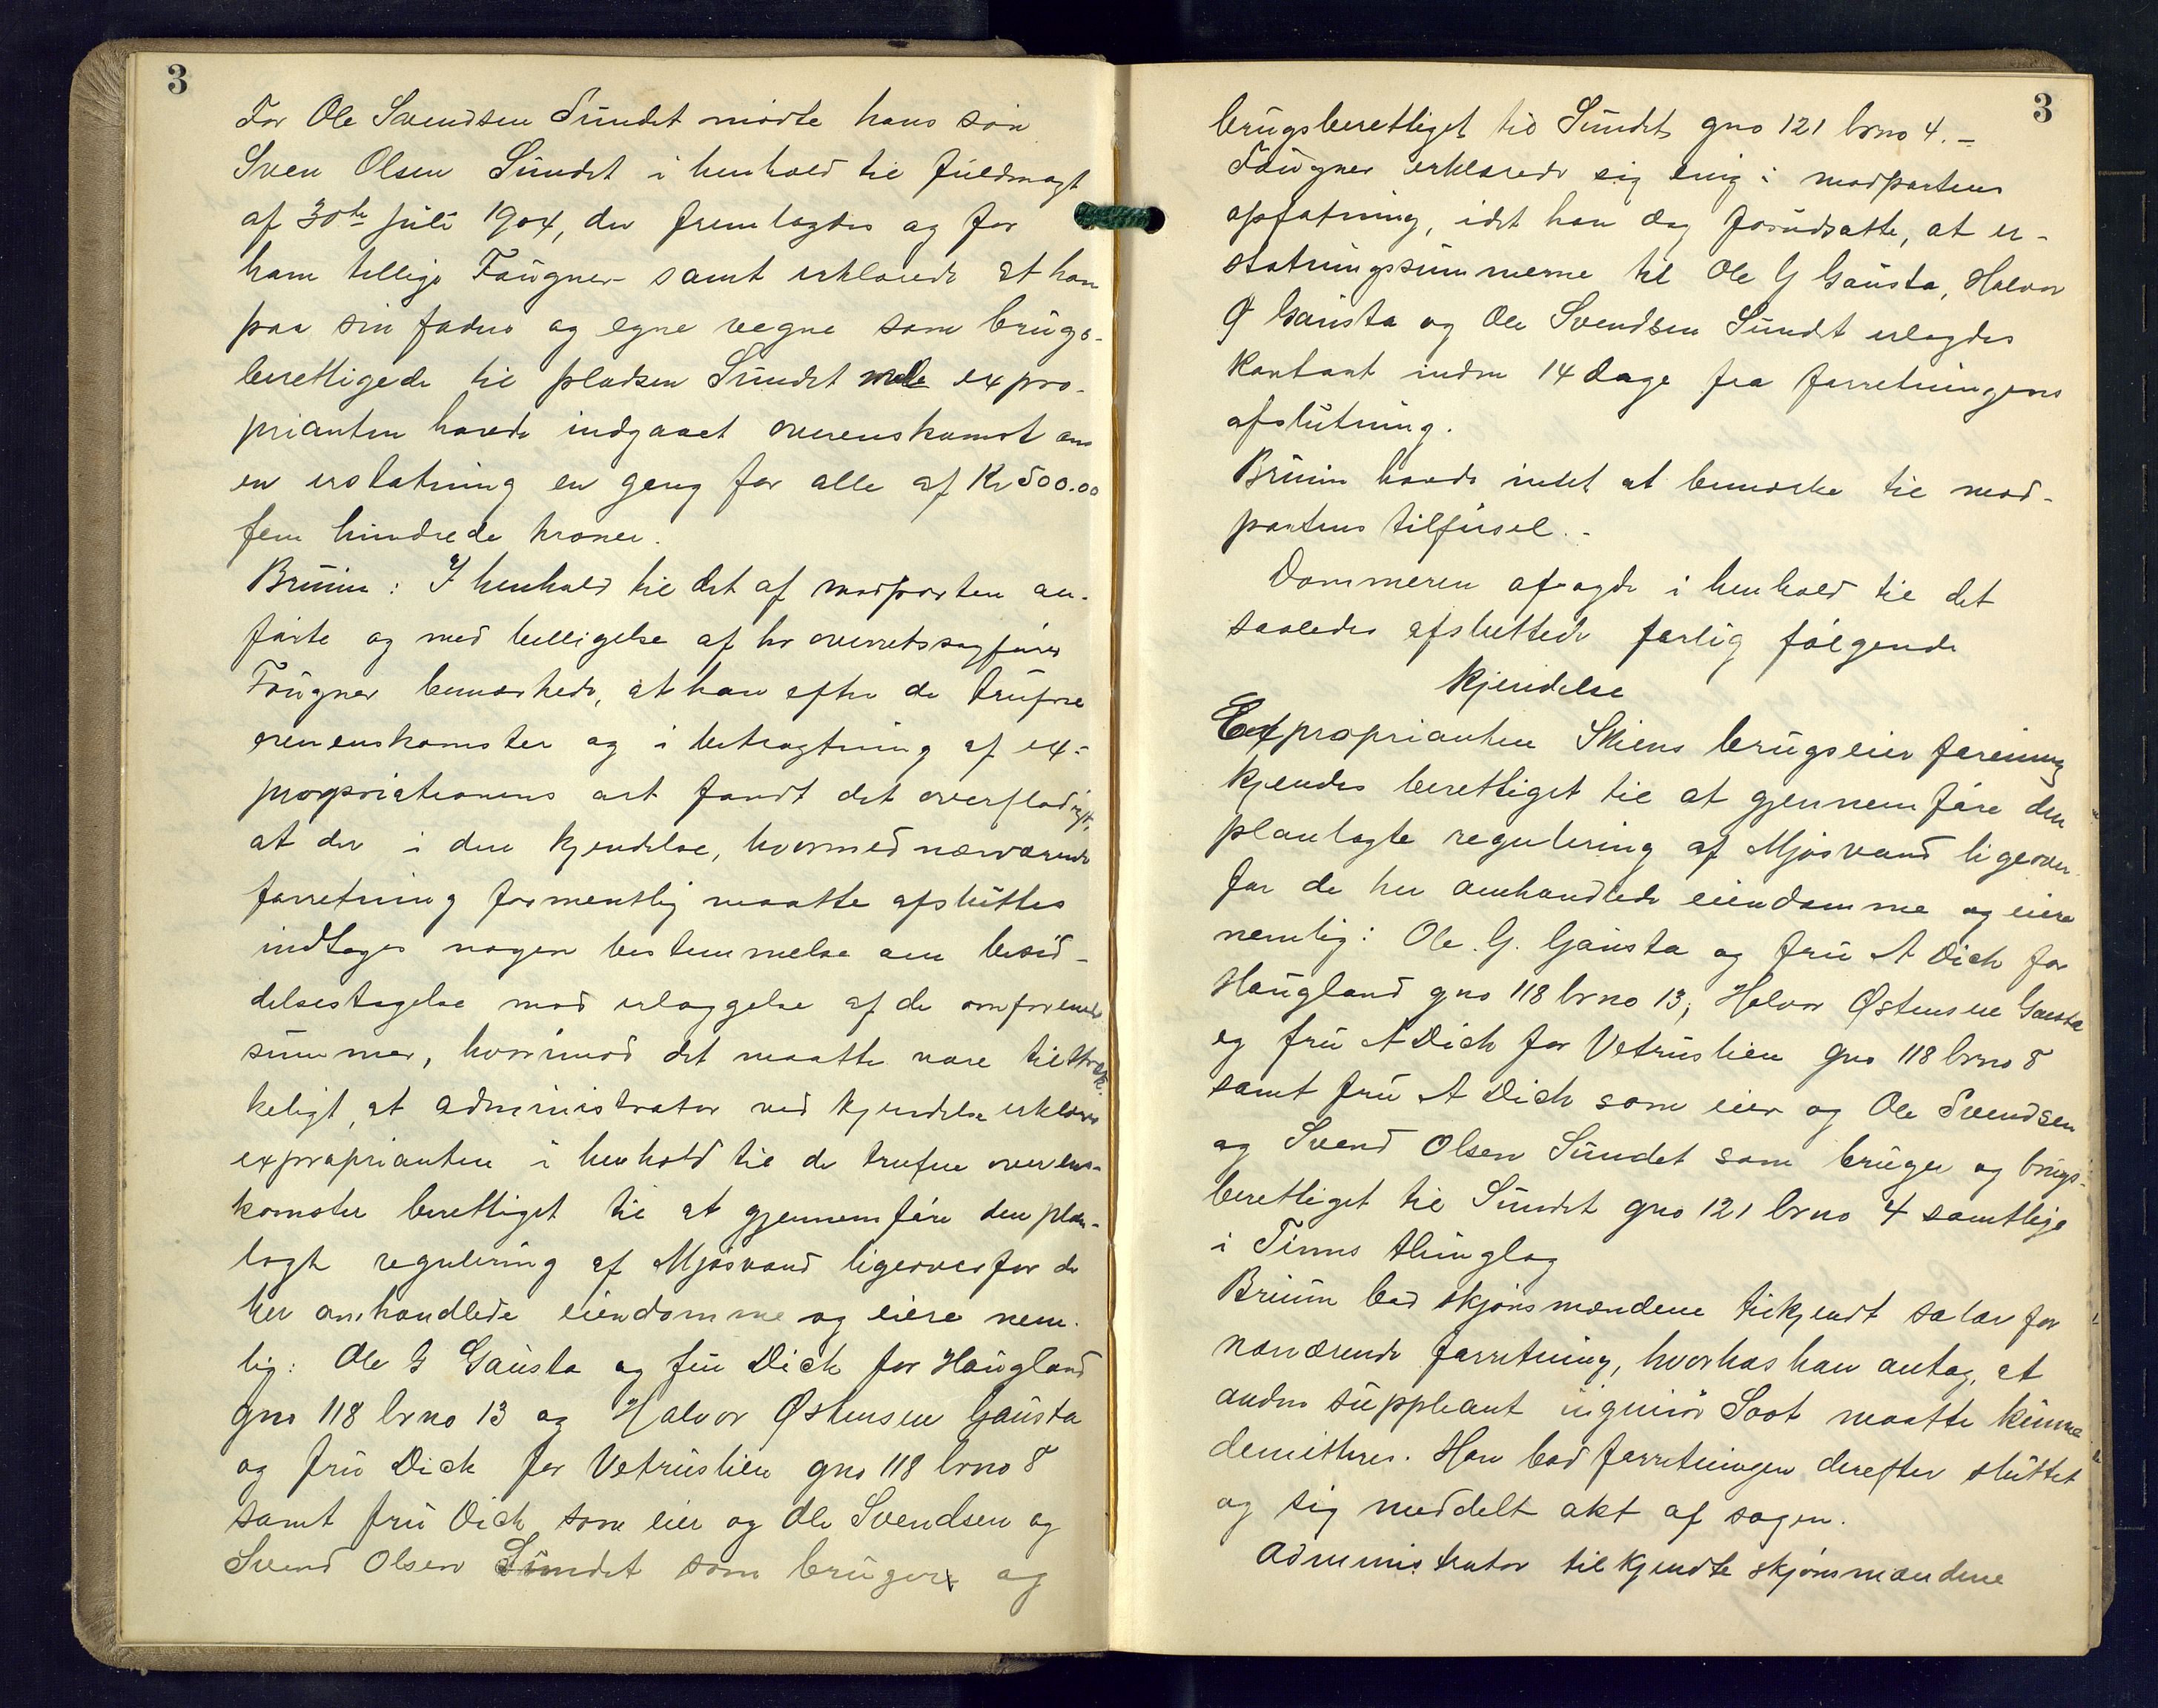 3
For Ole Svendsen Sundet mødte hans søn
Sven Olsen Sundet i henhold til fuldmagt
af 30te juli 1904, der fremlagdes og for
ham tillige Fougner samt erklærede at han
paa sin faders og egne vegne som brugs-
berettigede til pladsen Sundet med expro-
prianten havde indgaaet overenskomst om
en erstatning en gang for alle af Kr 500.00
fem hundrede kroner.
Bruun: I henhold til det af modparten an-
førte og med billigelse af hr overretssagfører
Fougner bemærkede, at han efter de trufne
overenskomster og i betragtning af ex-
propriationens art fandt det overflødigt,
at der i den kjendelse, hvormed nærværende
forretning formentlig maatte afsluttes
indtages nogen bestemmelse om besid-
delsestagelse mod erlæggelse af de omforenede
summer, hvorimod det maatte være tilstræk-
keligt, at administrator ved kjendelse erklærer
exproprianten i henhold til de trufne overens-
komster berettiget til at gjennemføre den plan-
lagte regulering af Mjøsvand ligeoverfor de
her omhandlede eiendomme og eiere nem-
lig: Ole G Gausta og fru Dick for Haugland
gno 118 brno 13 og Halvor Østensen Gausta
og fru Dick for Vetruslien gno 118 brno 8
samt fru Dick som eier og Ole Svendsen og
Svend Olsen Sundet som bruger og
3
brugsberettiget til Sundet gno 121 brno 4.-
Fougner erklærede sig enig i modpartens
opfatning, idet han dog forudsatte, at er-
statningssummerne til Ole G Gausta, Halvor
Ø Gausta og Ole Svendsen Sundet erlagdes
kontant inden 14 dage fra forretningens
afslutning.
Bruun havde intet at bemærke til mod-
partens tilførsel.-
Dommeren afsagde i henhold til det
saaledes afsluttede forlig følgende
Kjendelse
Exproprianten Skiens brugseierforening
kjendes berettiget til at gjennemføre den
planlagte regulering af Mjøsvand ligeover-
for de her omhandlede eiendomme og eiere
nemlig: Ole G. Gausta og fru A Dick for
Haugland gno 118 brno 13, Halvor Østensen Gausta
og fru A Dick for Vetruslien gno 118 brno 8
samt fru A Dick som eier og Ole Svendsen
og Svend Olsen Sundet som bruger og brugs-
berettiget til Sundet gno 121 brno 4 samtlige
i Tinns thinglag
Bruun bad skjønsmændene tilkjendt salær for
nærværende forretning, hvorhos han antog, at
anden suppleant ingeniør Soot maatte kunne
demitteres. Han bad forretningen derefter sluttet
og sig meddelt akt af sagen.
Administrator tilkjendte skjønsmændene